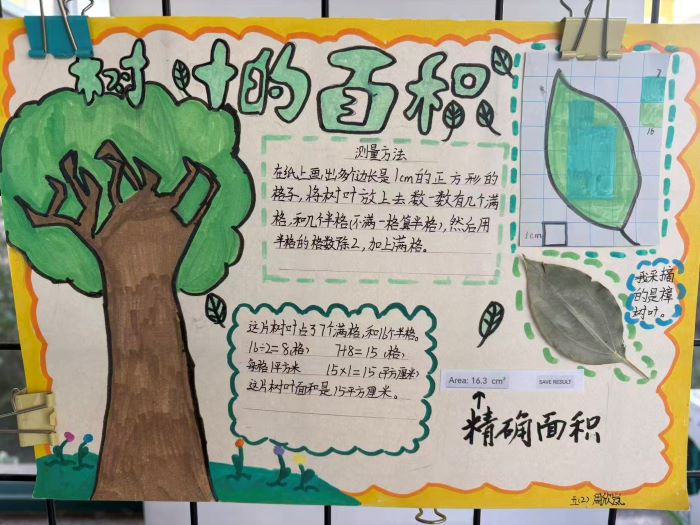 树叶的面积
测量方法
在纸上画出多个边长是1cm的正方形的
格子，将树叶放上去，数一数有几个满
格，和几个半格（不满一格算半格），然后用
半格的格数除2，加上满格。
7
16
1cm
我采摘
的是樟
树叶。
这片树叶占了7个满格，和16个半格。
16÷2=8（格） 7+8=15（格）
每格1平方米 15×1=15（平方厘米）
这片树叶面积是15平方厘米。
Area: 16.3 cm² SAVE RESULT
精确面积
五(2)